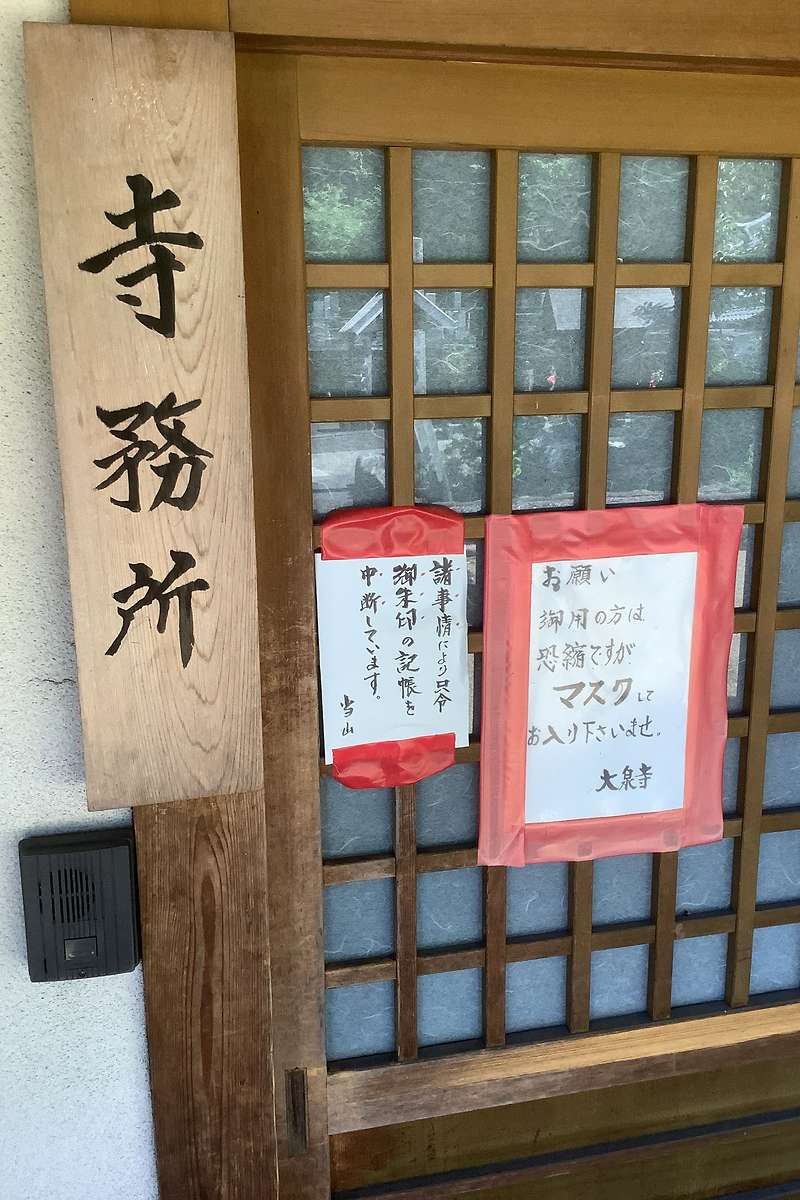 寺務所
諸事情により只今
御朱印の記帳を
中断しています。
当山
お願い
御用の方は
恐縮ですが
マスクして
お入り下さいませ。
大泉寺